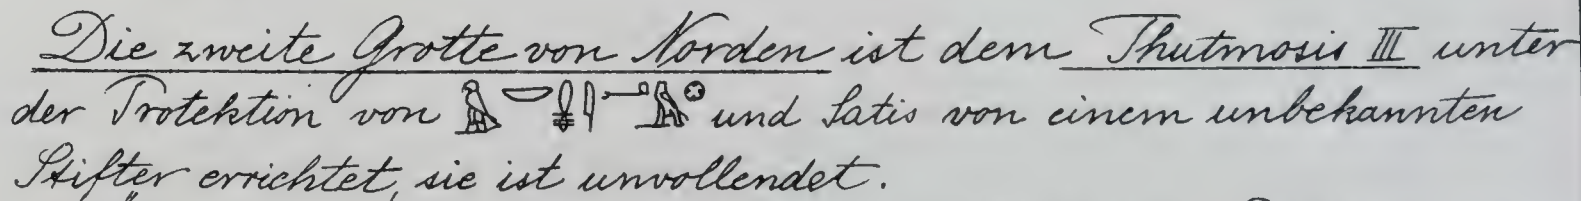 Die zweite Grotte von Norden ist dem Thutmosis III unter
der Protektion von 𓅃𓎟𓏇𓇋𓂝𓅓𓊖 und Satis von einem unbekannten
Stifter errichtet, sie ist unvollendet.